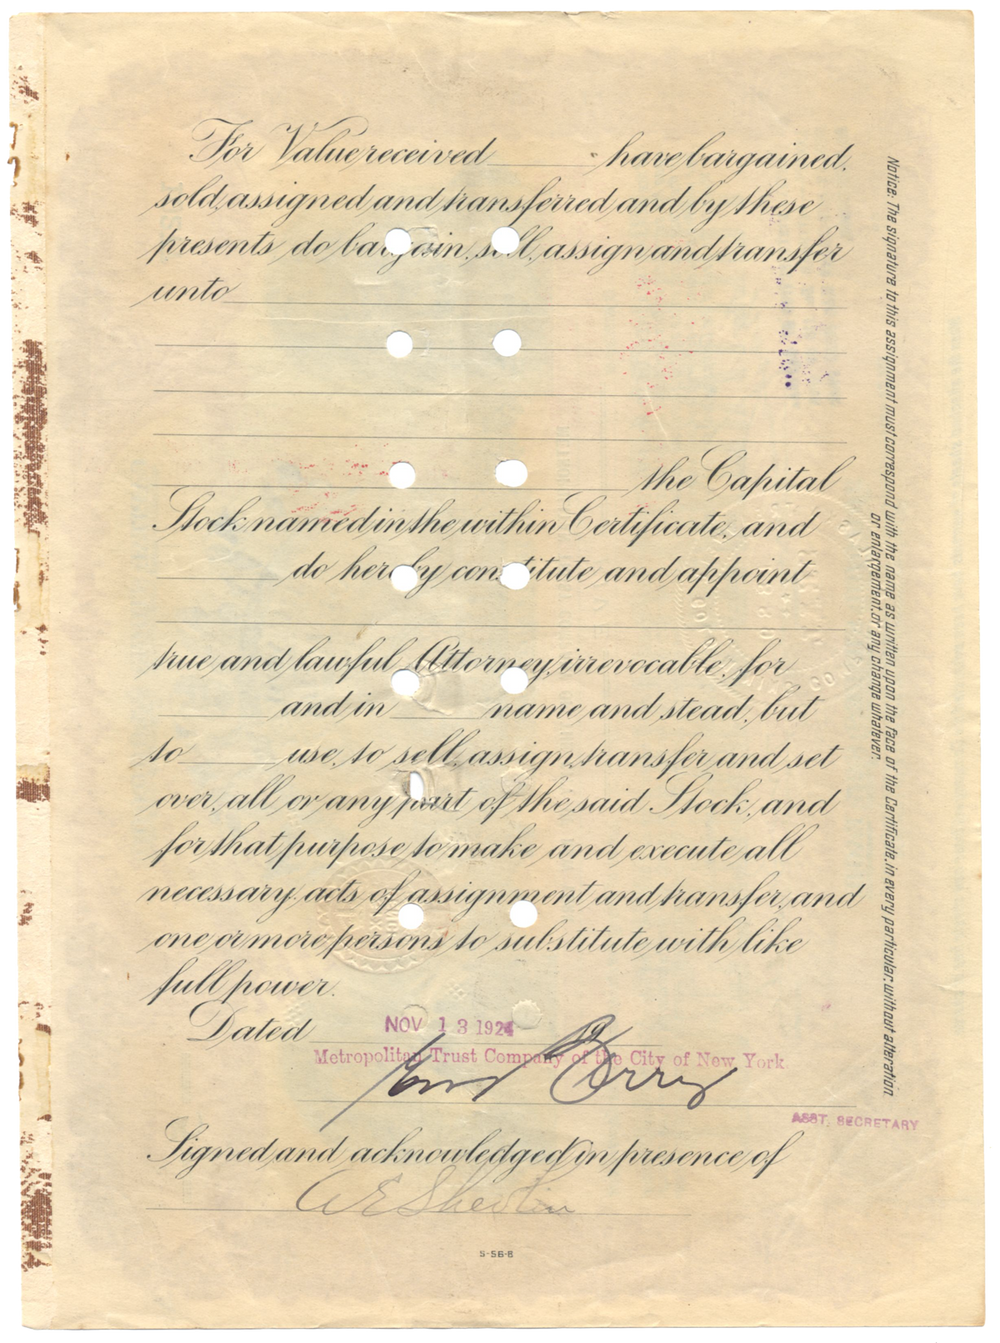 For Value received have bargained,
sold, assigned and transferred and by these
presents do bargain, sell, assign and transfer
unto
the Capital
Stock named in the within Certificate, and
do hereby constitute and appoint
true and lawful Attorney, irrevocable, for
and in name and stead, but
to use, to sell, assign, transfer and set
over, all or any part of the said Stock, and
for that purpose to make and execute all
necessary acts of assignment and transfer, and
one or more persons to substitute with like
full power.
Dated NOV 13 1924
Metropolitan Trust Company of the City of New York
ASST. SECRETARY
Signed and acknowledged in presence of
S-56-8
Notice. The signature to this assignment must correspond with the name as written upon the face of the Certificate, in every particular, without alteration
or enlargement, or any change whatever.